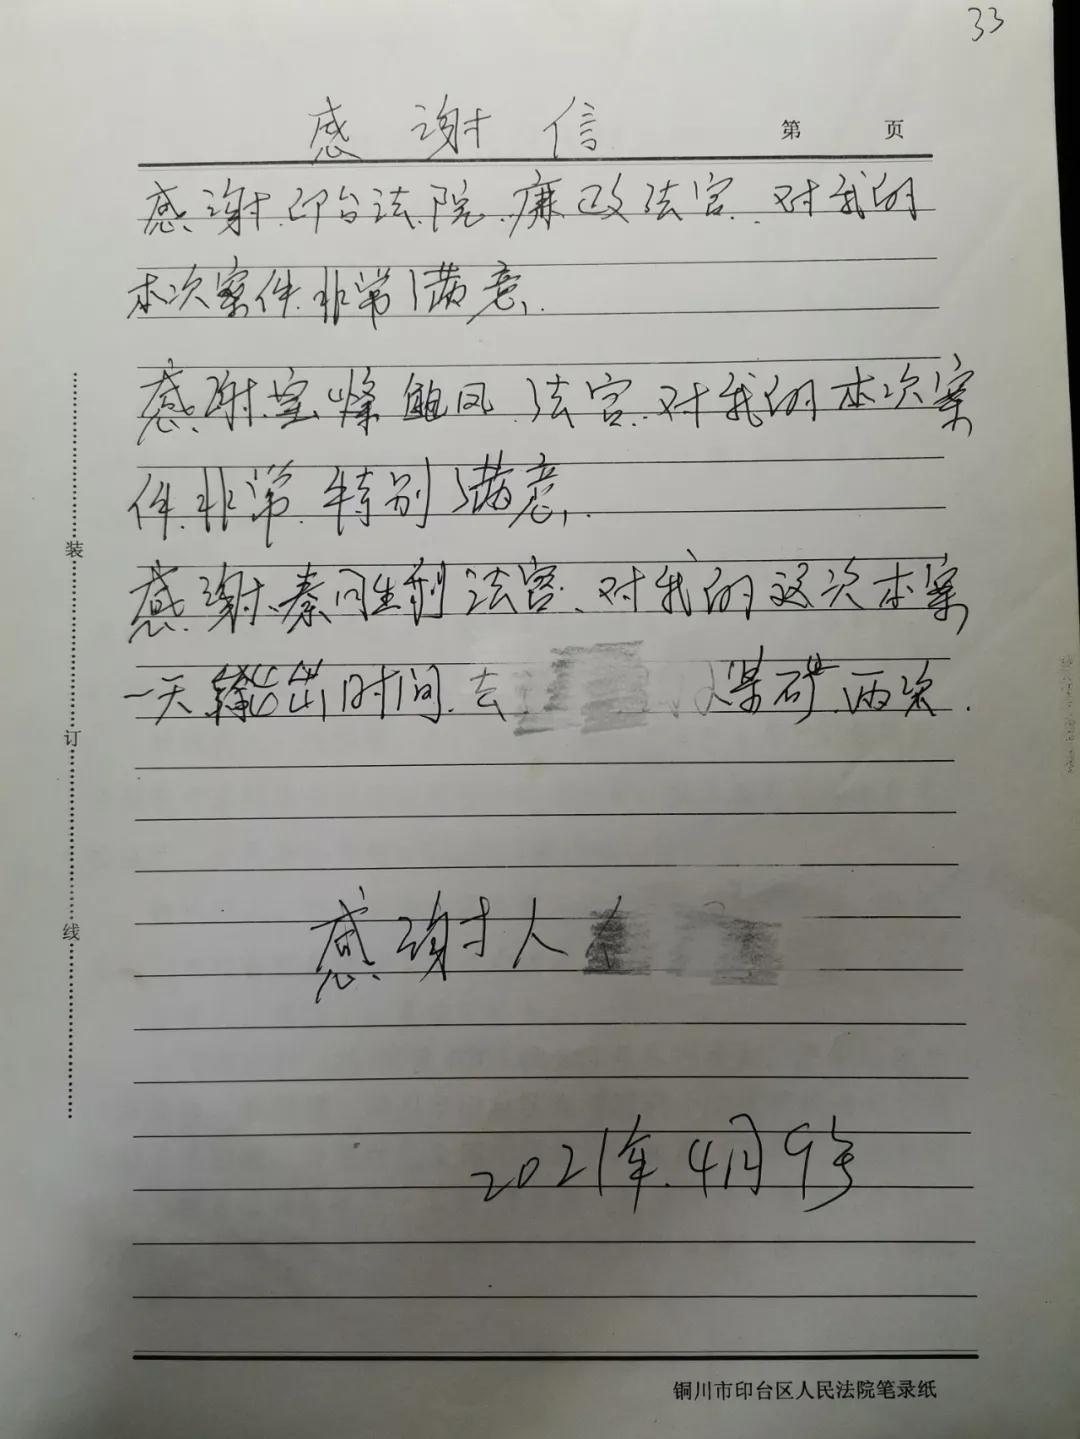 33
感谢信
第 页
感谢.印台法院.廉政法官.对我的
本次案件.非常满意.
感谢.法官.对我的本次案
件.非常.特别满意.
感谢.秦法官.对我的这次本案
一天时间.去 煤矿.两次.
感谢人
2021年.4月9号
装
订
线
铜川市印台区人民法院笔录纸